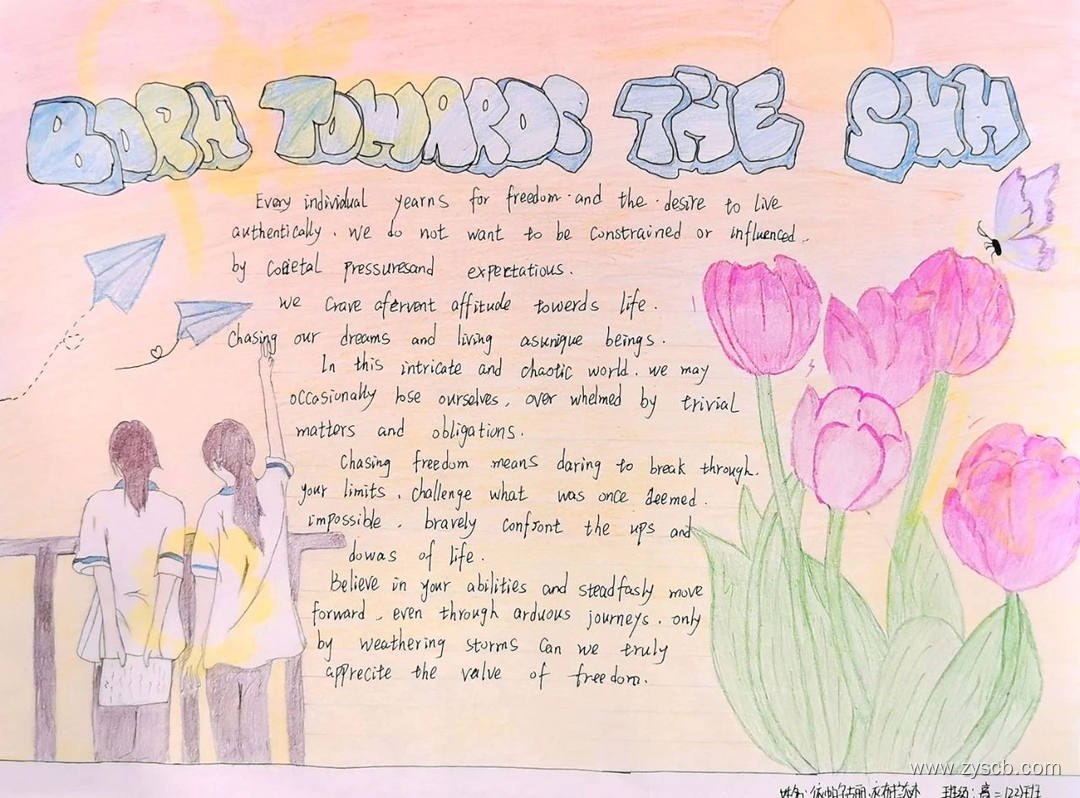 BORN TOWARDS THE SUN
Every individual yearns for freedom and the desire to live
authentically. We do not want to be constrained or influenced.
by cocietal pressuresand expertations.
We crave afervent affitude towerds life.
Chasing our dreams and living asunique beings.
In this intricate and chaotic world. we may
occasionally lose ourselves, over whelmed by trivial
matters and obligations.
Chasing freedom means daring to break through.
your limits, challenge what was once deemed.
impossible, bravely confront the ups and
dowas of life.
Believe in your abilities and steadfasly move
forward, even through arduous journeys. only
by weathering storms can we truly
apprecite the value of freedom.
www.zyscb.com
姓名: 班级:高二(22)班